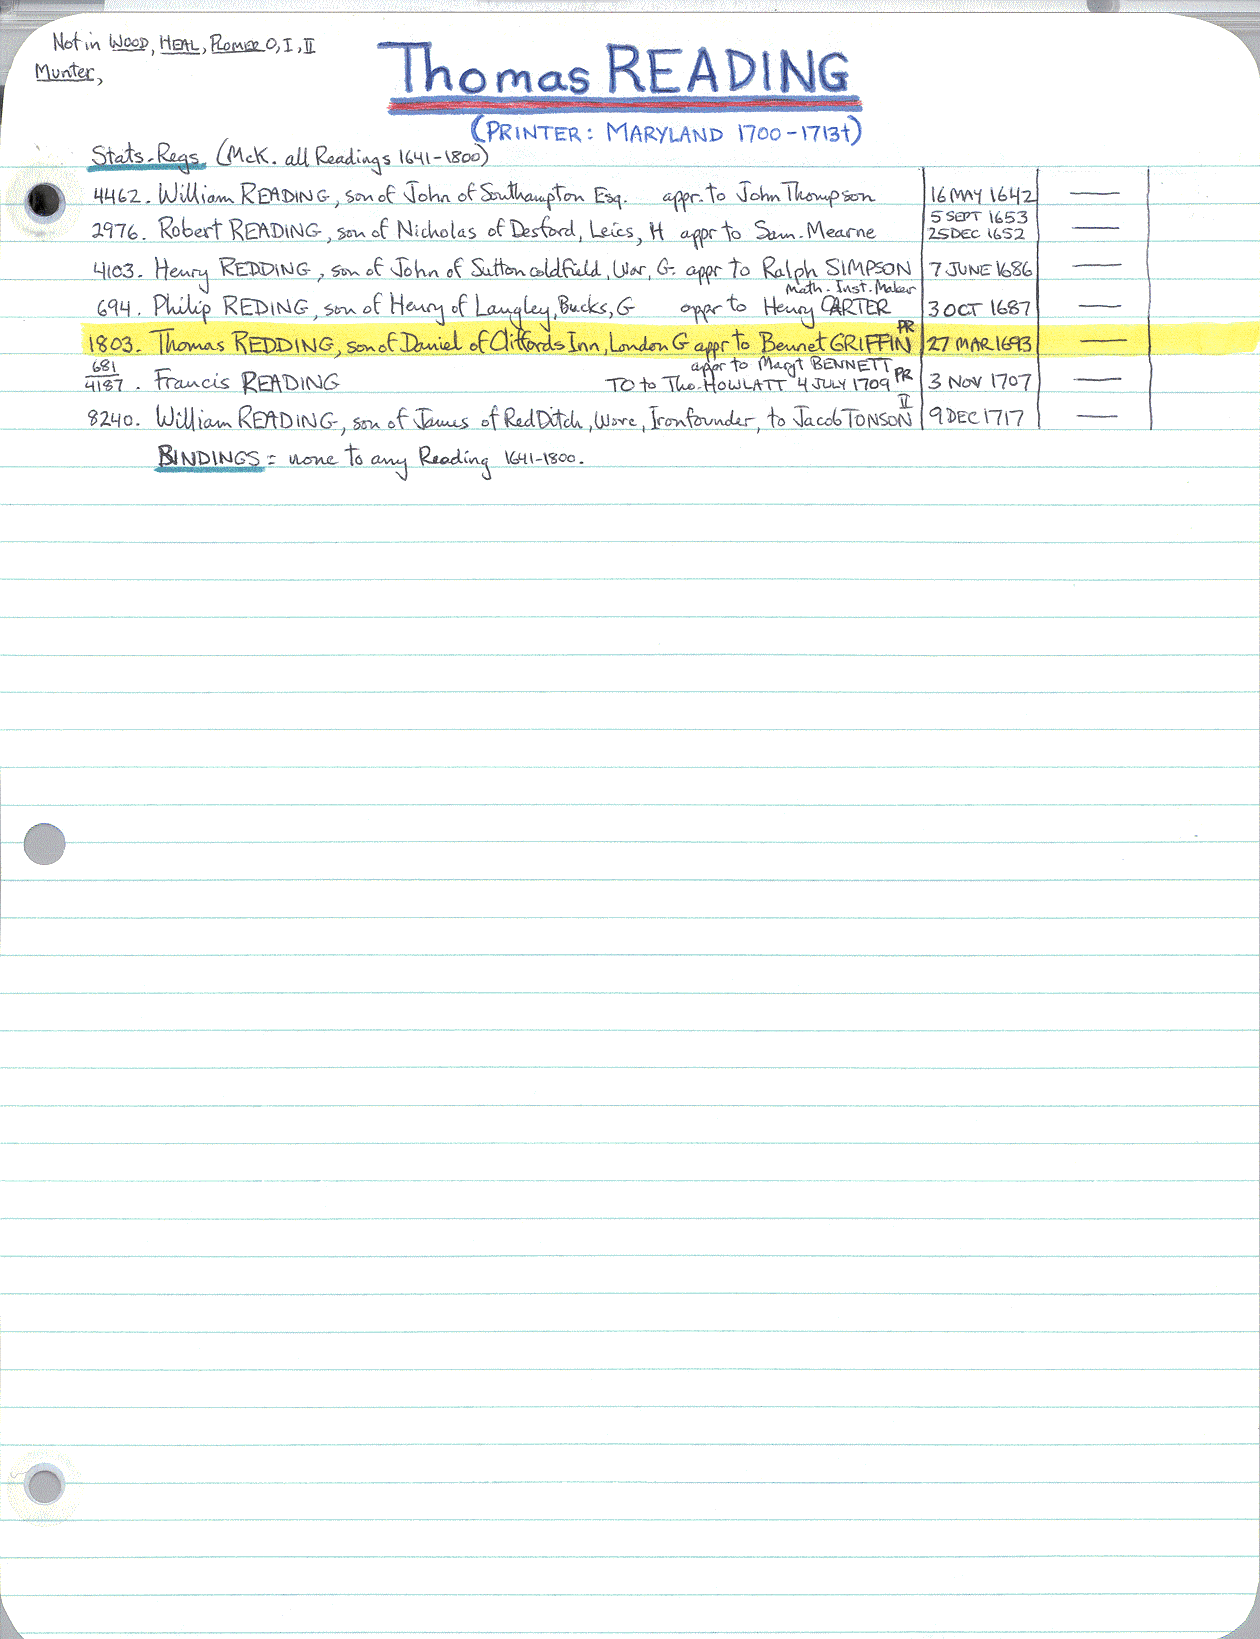 Not in WOOD, HEAL, Plomer O, I, II
Munter,
Thomas READING
(PRINTER: MARYLAND 1700-1713†)
Stats-Regs (McK. all Readings 1641-1800)
4462. William READING, son of John of Southampton Esq. appr. to John Thompson 16 MAY 1642 —
5 SEPT 1653
2976. Robert READING, son of Nicholas of Desford, Leics, H appr to Sam. Mearne 25 DEC 1652 —
4103. Henry REDDING, son of John of Sutton coldfield, War, G. appr to Ralph SIMPSON 7 JUNE 1686 —
Math. Inst. Maker
694. Philip REDING, son of Henry of Langley, Bucks, G appr to Henry CARTER 3 OCT 1687 —
PR
1803. Thomas REDDING, son of Daniel of Cliffords Inn, London G appr to Bennet GRIFFIN 27 MAR 1693 —
681 appr to Margt BENNETT PR
4187. Francis READING TO to Tho. HOWLATT 4 JULY 1709 3 NOV 1707 —
II
8240. William READING, son of James of Red Ditch, Worc, Ironfounder, to Jacob TONSON 9 DEC 1717 —
BINDINGS = none to any Reading 1641-1800.